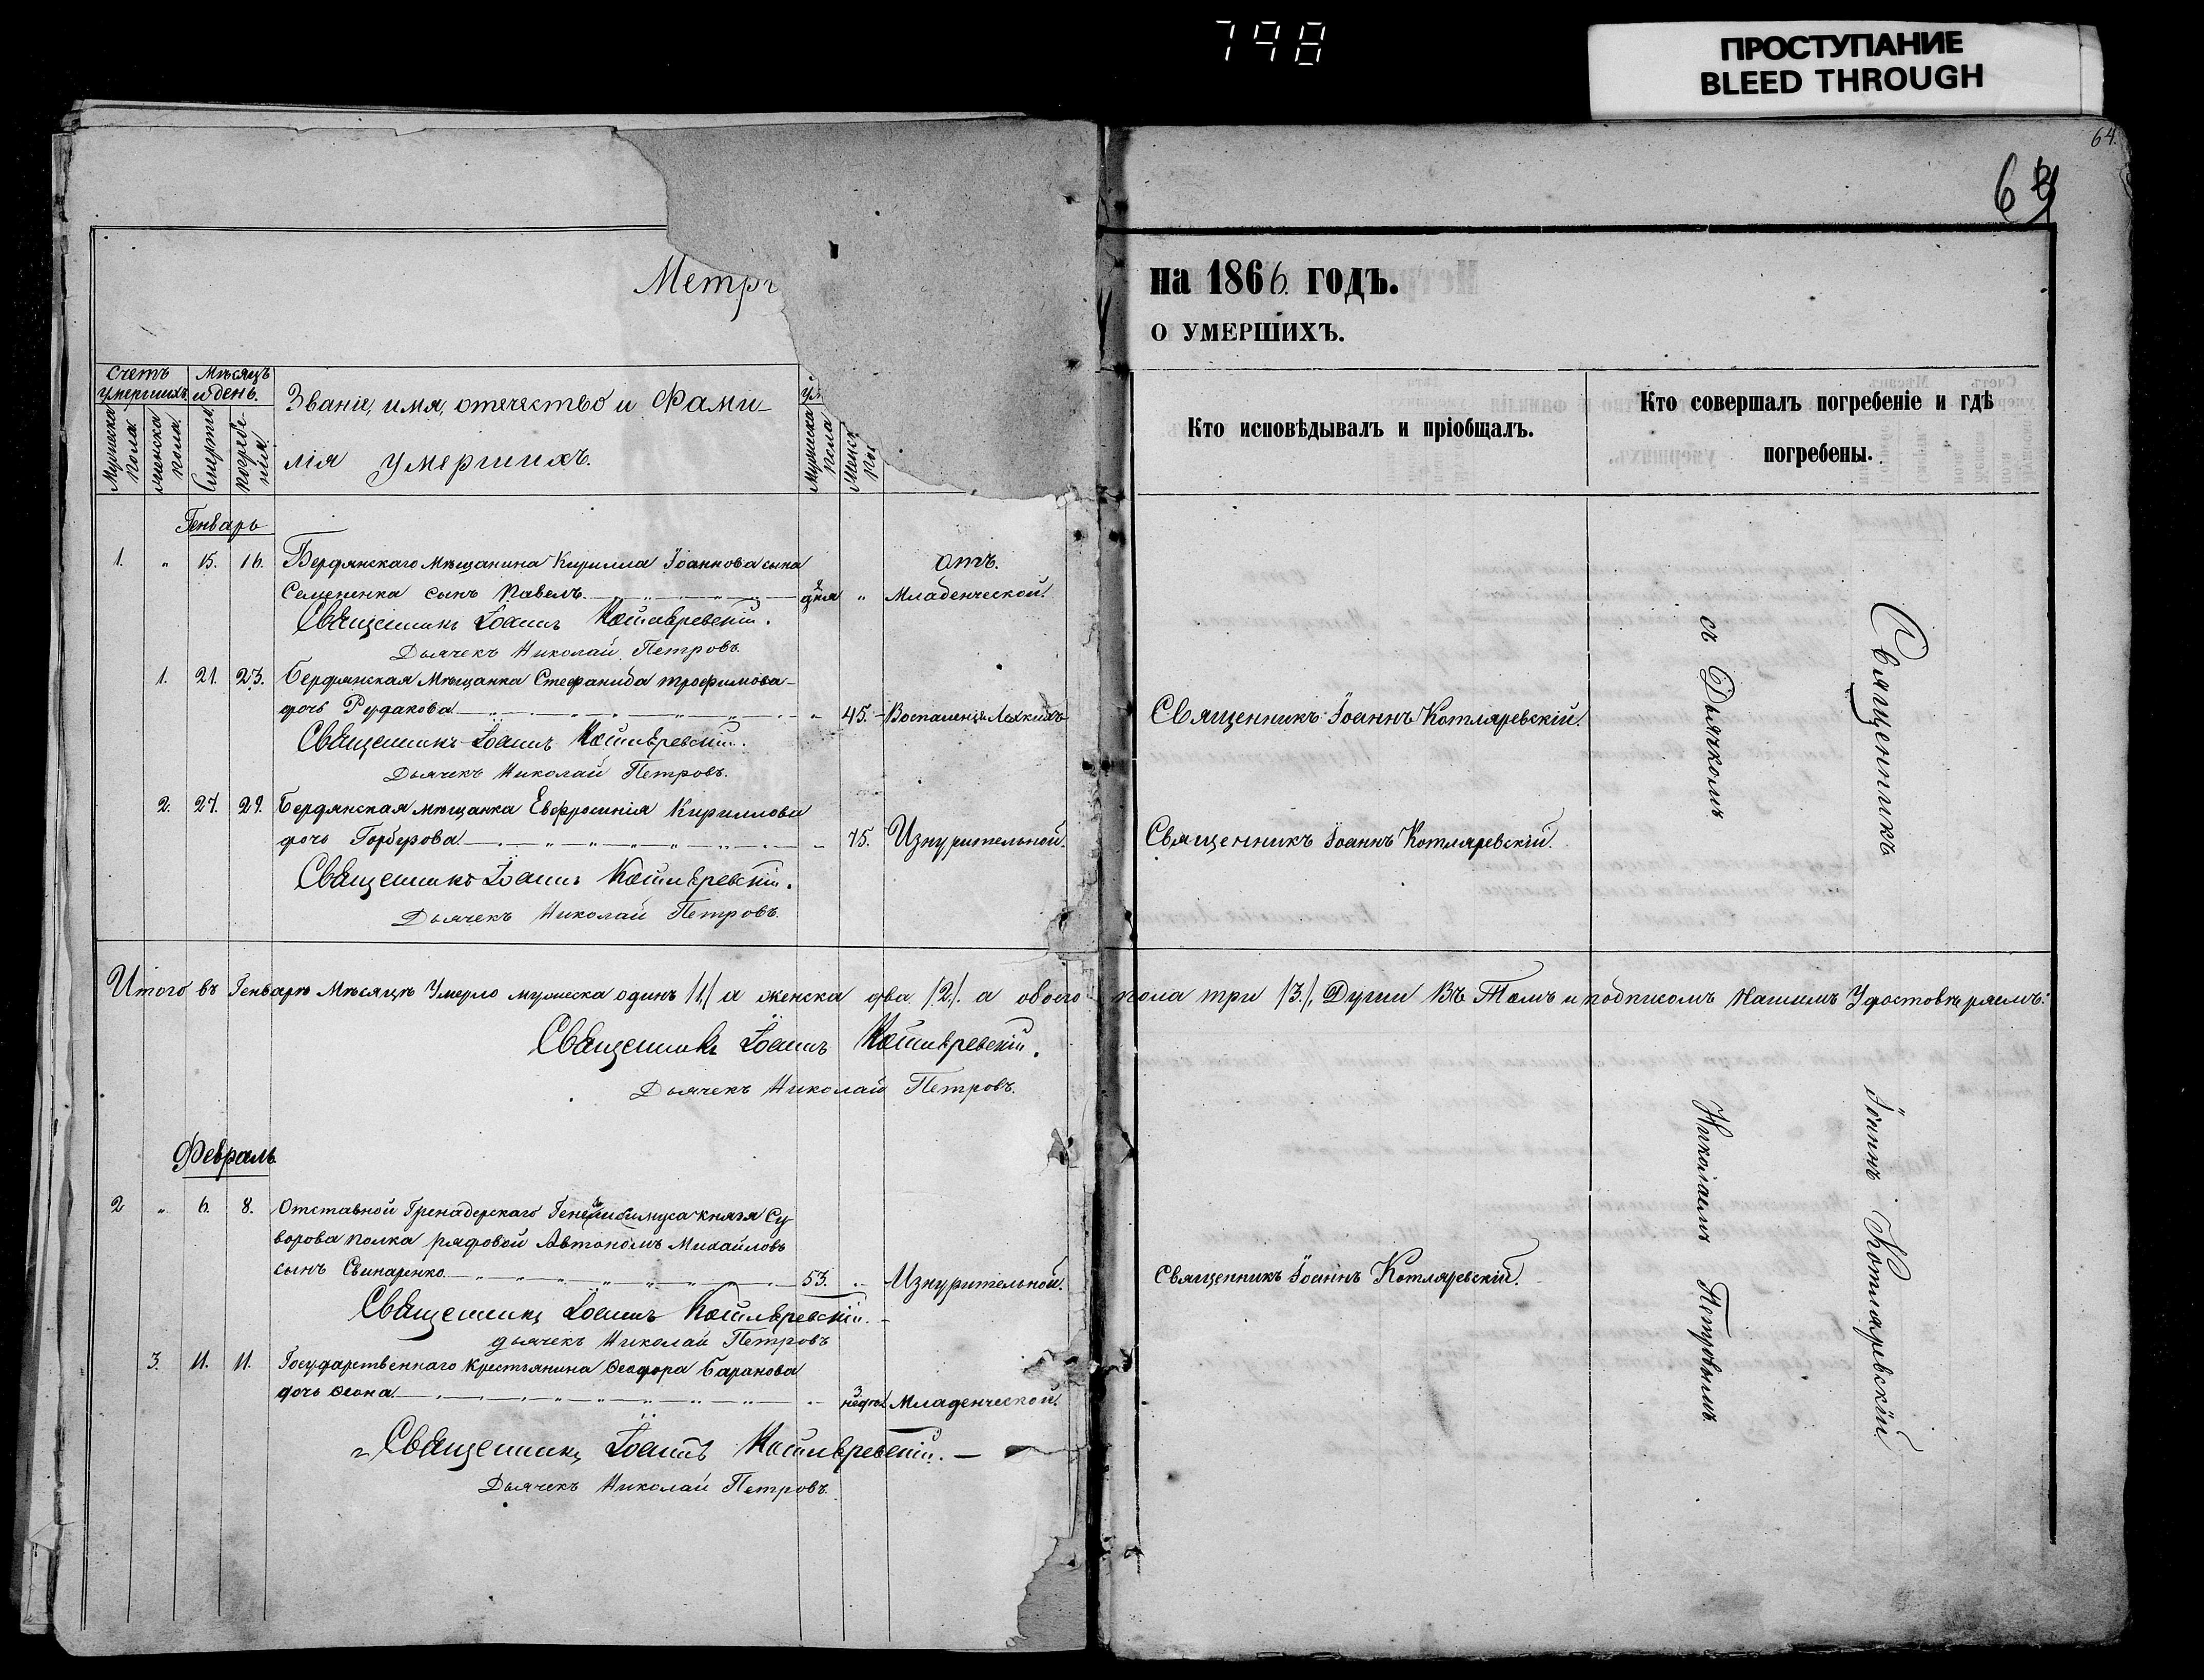 798
ПРОСТУПАНИЕ
BLEED THROUGH
64.
6
Метри
на 1866 годъ.
О УМЕРШИХЪ.
Счетъ умершихъ
Мѣсяцъ и день.
Мужеска пола.
Женска пола.
Смерти
погребенія.
Званіе, имя, отечество и Фами-
лія умершихъ.
Мужеска пола
Женск
Кто исповѣдывалъ и пріобщалъ.
Кто совершалъ погребеніе и гдѣ
погребены.
Генварь
1. " 15. 16. Бердянскаго мѣщанина Кирилла Іоаннова сына отъ.
Семененка сынъ Павелъ. дня " Младенческой.
Священникъ Іоаннъ Котляревскій.
Дьячекъ Николай Петровъ.
1. 21. 23. Бердянская Мѣщанка Стефанида трофимова
дочь Рудакова 45. Воспаленія Легкихъ Священникъ Іоаннъ Котляревскій.
Священникъ Іоаннъ Котляревскій.
Дьячекъ Николай Петровъ.
2. 27. 29. Бердянская мѣщанка Евфросинія Кириллова
дочь Горбурова 75. Изнурительной. Священникъ Іоаннъ Котляревскій.
Священникъ Іоаннъ Котляревскій.
Дьячекъ Николай Петровъ.
Итого въ Генварѣ Мѣсяцѣ Умерло мужеска одинъ /1/ а женска два /2/. а обоего пола три /3./, Души Въ Томъ и подписомъ Нашимъ Удостовѣряемъ:
Священникъ Іоаннъ Котляревскій.
Дьячекъ Николай Петровъ.
Февраль
2 " 6. 8. Отставной Гренадерскаго Генералисимуса князя Су-
ворова полка рядовой Автономъ Михайловъ
сынъ Свинаренко 53. Изнурительной. Священникъ Іоаннъ Котляревскій.
Священникъ Іоаннъ Котляревскій.
дьячекъ Николай Петровъ
3. 11. 11. Государственнаго Крестьянина Ѳеодора Баранова
дочь Ѳеона. 3 недѣл. Младенческой.
Священникъ Іоаннъ Котляревскій.
Дьячекъ Николай Петровъ.
Священникъ Іоаннъ Котляревскій
съ Дьячкомъ Николаемъ Петровымъ